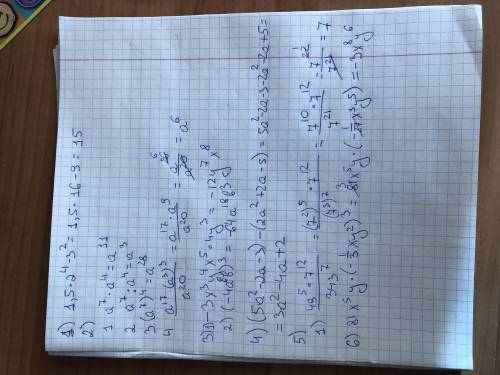 1) 1,5·2⁴-3²=1,5·16-9=15
2)
1. a⁷·a⁴=a¹¹
2 a⁷:a⁴=a³
3. (a⁷)⁴=a²⁸
4 a¹⁷·(a³)³/a²⁰ = a¹⁷·a⁹/a²⁰ = a²⁶/a²⁰ = a⁶
3) 1) -3x³y⁴x⁵·4y³=-12y⁷x⁸
2) (-4a⁶b)³=-64a¹⁸b³
4) (5a²-2a-3)-(2a²+2a-5)=5a²-2a-3-2a²-2a+5=
=3a²-4a+2
5)
1) 49⁵·7¹²/343⁷ = (7²)⁵·7¹²/(7³)⁷ = 7¹⁰·7¹²/7²¹ = 7²²/7²¹ = 7
6) 81x⁵y·(-1/3xy²)³=81x⁵y·(-1/27x³y⁵)=-3x⁸y⁶